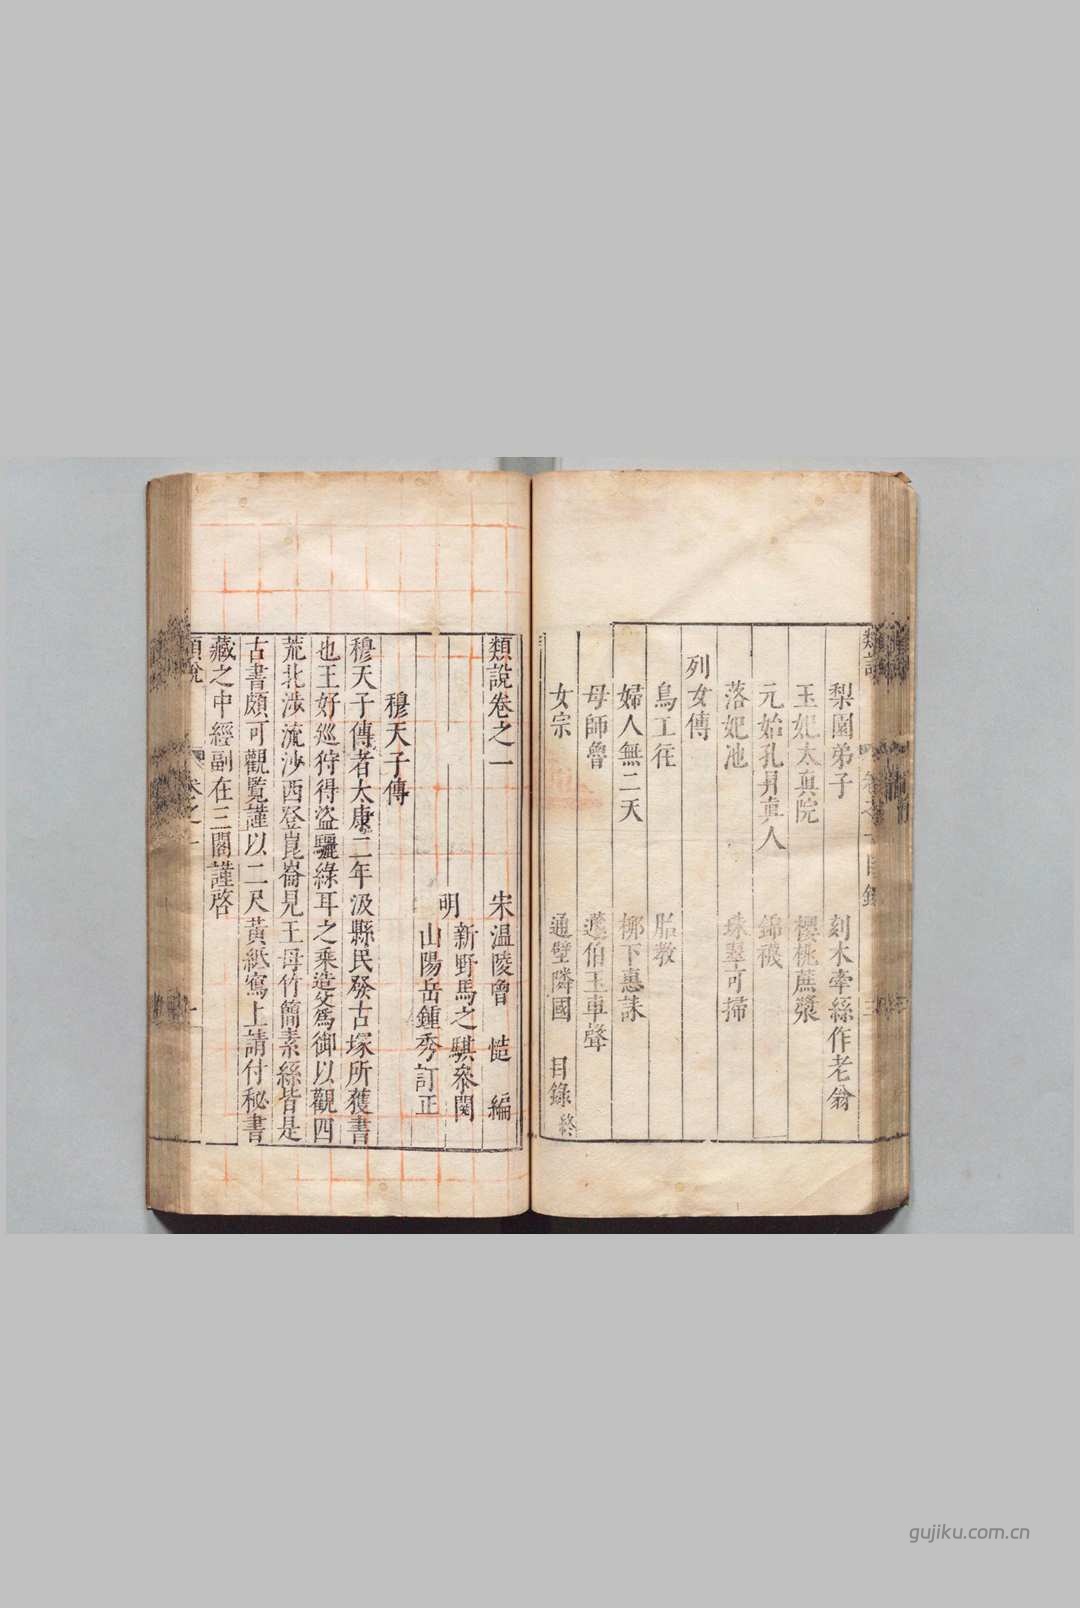 梨園弟子　刻木牽絲作老翁
玉妃太真院　櫻桃蔗漿
元始孔昇真人　錦襪
落妃池　珠翠可掃
列女傳
鳥工往　胎教
婦人無二天　柳下惠誄
母師魯　蘧伯玉車聲
女宗　通壁隣國　目錄終
類說卷之一
宋温陵曾　慥　編
明
新野馬之騏叅閱
山陽岳鍾秀訂正
穆天子傳
穆天子傳者太康二年汲縣民發古塚所獲書
也王好巡狩得盗驪綠耳之乘造父爲御以觀四
荒北涉流沙西登崑崙見王母竹簡素絲皆是
古書頗可觀覽謹以二尺黃紙寫上請付秘書
藏之中經副在三閣謹啓
類說　卷之一
gujiku.com.cn